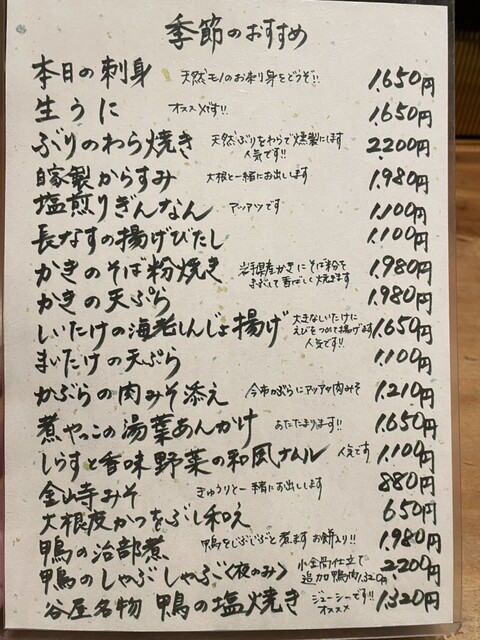 季節のおすすめ
本日の刺身 天然モノのお刺り身をどうぞ!! 1,650円
生うに オススメです!! 1,650円
ぶりのわら焼き 天然ぶりをわらで燻製にします 人気です!! 2,200円
自家製からすみ 大根と一緒にお出しします 1,980円
塩煎りぎんなん アツアツです 1,100円
長なすの揚げびたし 1,100円
かきのそば粉焼き 岩手県産かきにそば粉をまぶして香ばしく焼きます 1,980円
かきの天ぷら 1,980円
しいたけの海老しんじょ揚げ 大きないたけにえびをつめて揚げます 人気です!! 1,650円
まいたけの天ぷら 1,100円
かぶらの肉みそ添え 今市かぶらにアツアツ肉みそ 1,210円
煮やっこの湯葉あんかけ あたたまります!! 1,650円
しらすと香味野菜の和風ナムル 人気です 1,100円
金山寺みそ きゅうりと一緒にお出しします 880円
大根皮かつをぶし和え 650円
鴨の治部煮 鴨をじぶじぶと煮ます お餅入り!! 1,980円
鴨のしゃぶしゃぶ〈夜のみ〉 小金膏仕立て 追加鴨肉1,320円 2,200円
谷屋名物 鴨の塩焼き ジューシーです!! オススメ 1,320円